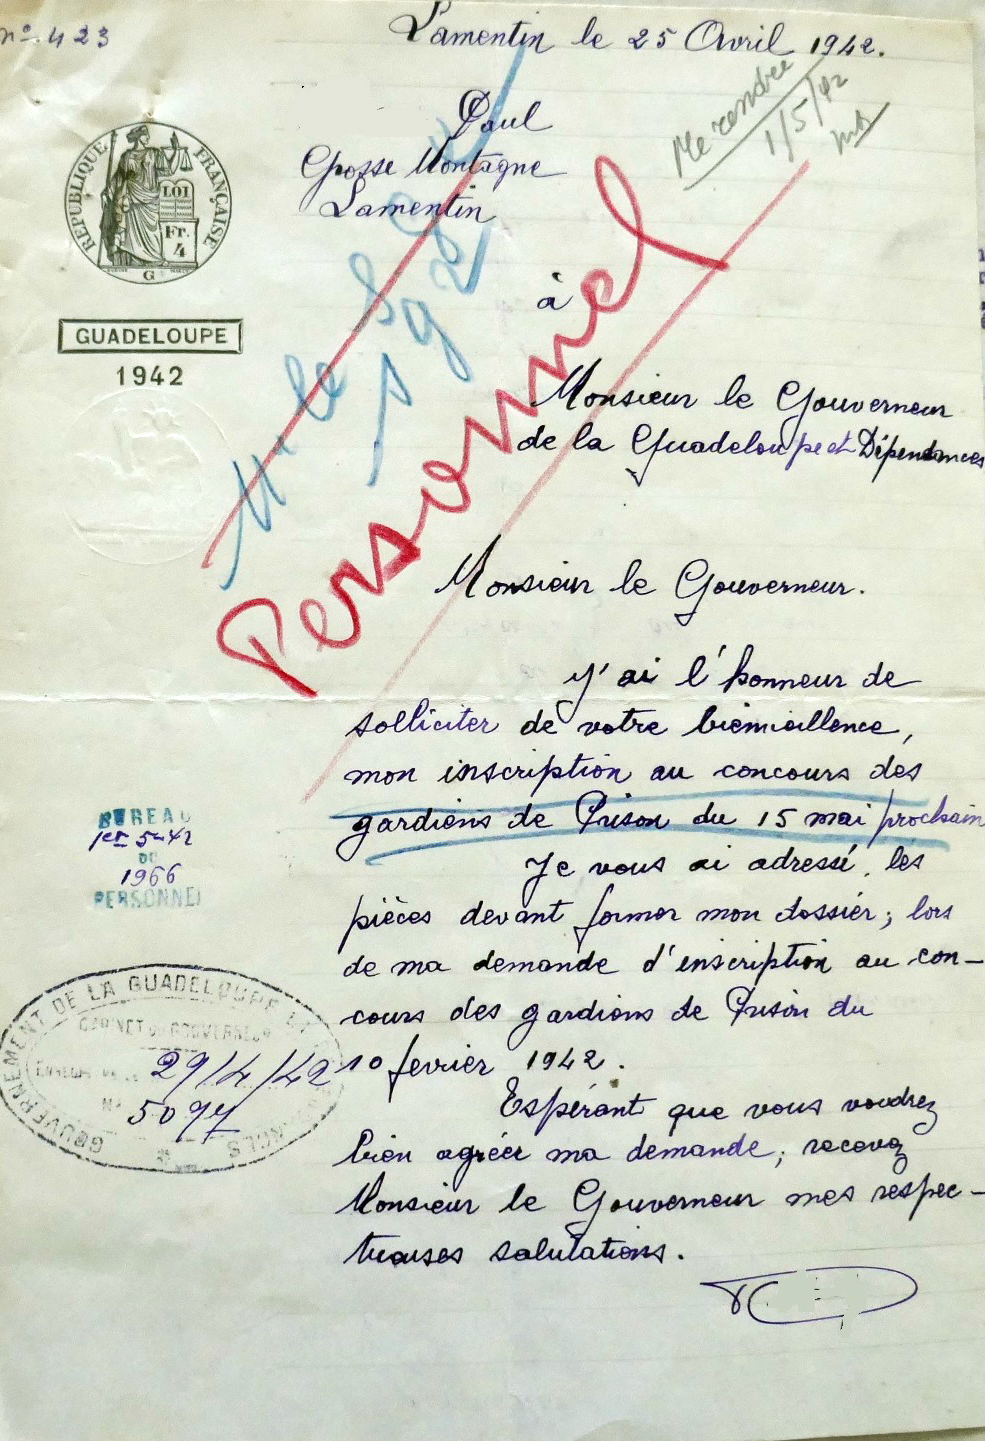 n° 423
Lamentin le 25 Avril 1942.
Me rendre
1/5/42
Paul
Grosse Montagne
Lamentin
RÉPUBLIQUE FRANÇAISE
LOI
Fr.
4
G
à
GUADELOUPE
1942
Mr le
Personnel
Monsieur le Gouverneur
de la Guadeloupe et Dépendances
Monsieur le Gouverneur.
J'ai l'honneur de
solliciter de votre bienveillence,
mon inscription au concours des
gardiens de Prison du 15 mai prochain
Je vous ai adressé, les
pièces devant former mon dossier; lors
de ma demande d'inscription au con-
cours des gardiens de Prison du
10 fevrier 1942.
Espérant que vous voudrez
bien agréer ma demande; recevez
Monsieur le Gouverneur mes respec-
tueuses salutations.
BUREAU
1er 5-42
DU
1966
PERSONNEL
GOUVERNEMENT DE LA GUADELOUPE
CABINET DU GOUVERNEUR
29/4/42
N°
5097